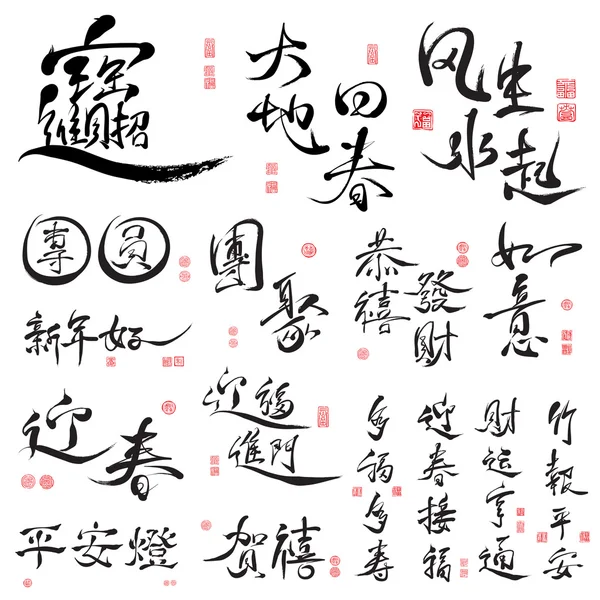 招財進寶
大地回春
风生水起
團圓
團聚
恭禧發財
如意
新年好
迎春
迎福進門
多福多寿
迎春接福
財运亨通
竹報平安
平安燈
贺禧